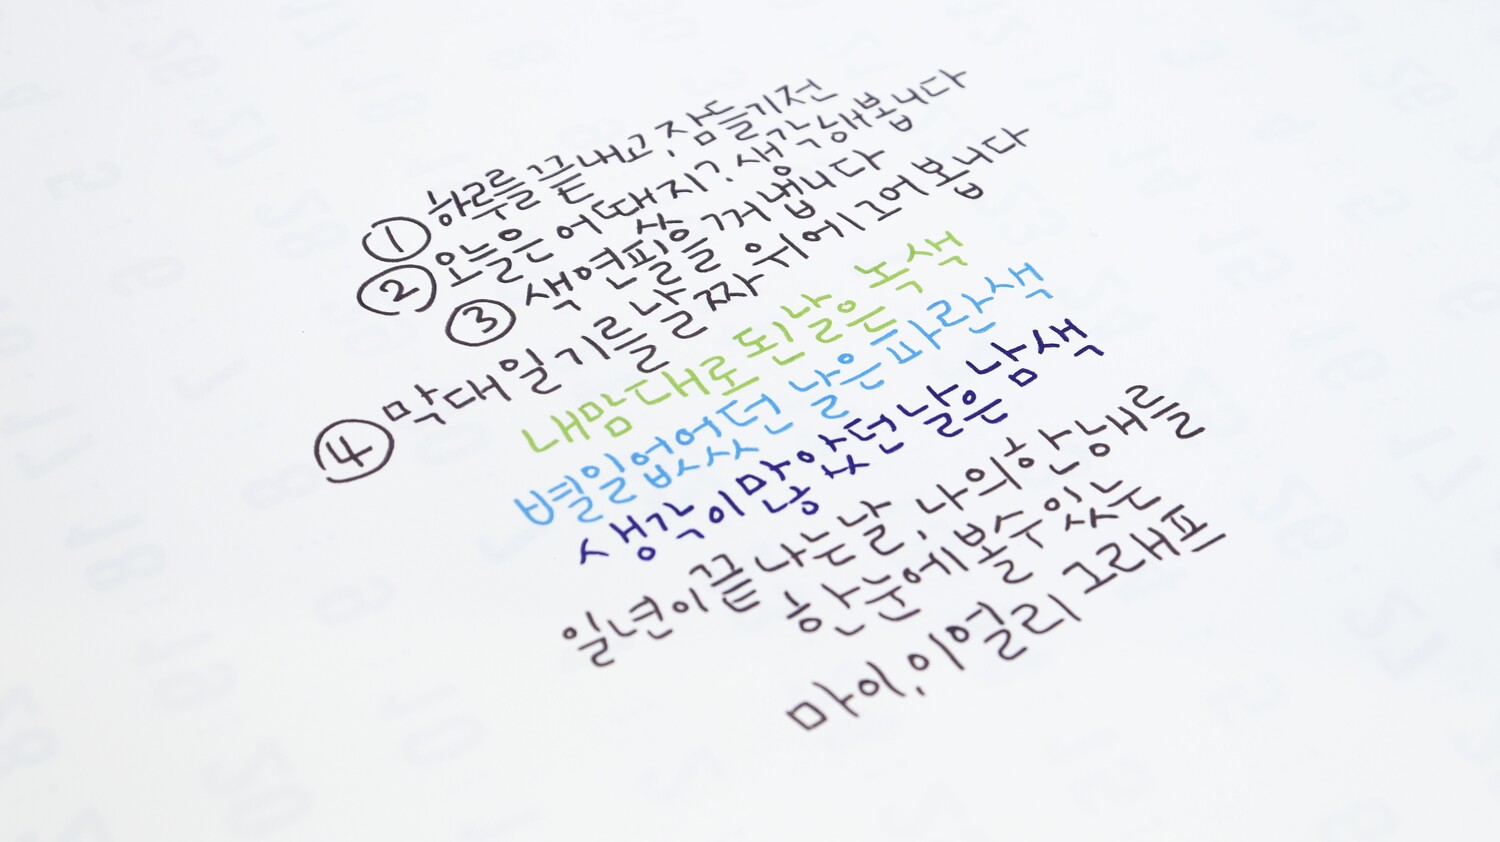 ① 하루를 끝내고, 잠들기전
② 오늘은 어땠지?. 생각해봅니다
③ 색연필을 꺼냅니다
④ 막대일기를 날짜 위에 그어봅니다
내맘대로 된 날은 녹색
별일없었던 날은 파란색
생각이 많았던 날은 남색
일년이 끝나는날, 나의 한해를
한눈에 볼 수 있는
마이, 이얼리 그래프